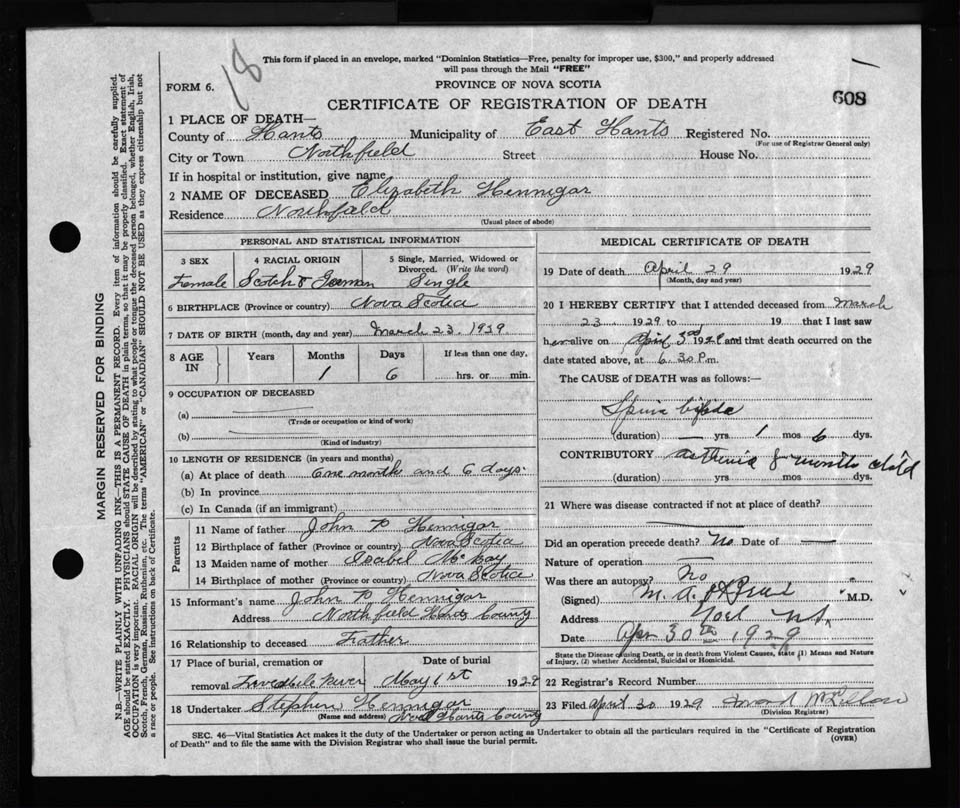 18
This form if placed in an envelope, marked "Dominion Statistics—Free, penalty for improper use, $300," and properly addressed
will pass through the Mail "FREE"
FORM 6.
PROVINCE OF NOVA SCOTIA
608
CERTIFICATE OF REGISTRATION OF DEATH
1 PLACE OF DEATH—
County of Hants Municipality of East Hants Registered No.
(For use of Registrar General only)
City or Town Northfield Street House No.
If in hospital or institution, give name
2 NAME OF DECEASED Elizabeth Hennigar
Residence Northfield
(Usual place of abode)
PERSONAL AND STATISTICAL INFORMATION
3 SEX 4 RACIAL ORIGIN 5 Single, Married, Widowed or
Divorced. (Write the word)
Female Scotch & German Single
6 BIRTHPLACE (Province or country) Nova Scotia
7 DATE OF BIRTH (month, day and year) March 23. 1929.
8 AGE IN Years Months Days If less than one day,
1 6 hrs. or min.
9 OCCUPATION OF DECEASED
(a)
(Trade or occupation or kind of work)
(b)
(Kind of industry)
10 LENGTH OF RESIDENCE (in years and months)
(a) At place of death One month and 6 days
(b) In province
(c) In Canada (if an immigrant)
Parents
11 Name of father John P Hennigar
12 Birthplace of father (Province or country) Nova Scotia
13 Maiden name of mother Isabel McKay
14 Birthplace of mother (Province or country) Nova Scotia
15 Informant's name John P Hennigar
Address Northfield Hants County
16 Relationship to deceased Father
17 Place of burial, cremation or Date of burial
removal River May 1st 1929
18 Undertaker Stephen Hennigar
(Name and address) Noel Hants County
MEDICAL CERTIFICATE OF DEATH
19 Date of death April 29 1929
(Month, day and year)
20 I HEREBY CERTIFY that I attended deceased from March
23 1929 to 19 that I last saw
her alive on April 3rd 1929 and that death occurred on the
date stated above, at 6.30 P.m.
The CAUSE of DEATH was as follows:—
Spina bifida
(duration) — yrs 1 mos 6 dys.
CONTRIBUTORY asthenia 8 months child
(duration) yrs. mos. dys.
21 Where was disease contracted if not at place of death?
Did an operation precede death? No Date of —
Nature of operation
Was there an autopsy? No
(Signed) M. A. M.D.
Address Noel N.S.
Date Apr 30th 1929
State the Disease causing Death, or in death from Violent Causes, state (1) Means and Nature
of Injury, (2) whether Accidental, Suicidal or Homicidal.
22 Registrar's Record Number
23 Filed April 30 1929
(Division Registrar)
SEC. 46—Vital Statistics Act makes it the duty of the Undertaker or person acting as Undertaker to obtain all the particulars required in the "Certificate of Registration
of Death" and to file the same with the Division Registrar who shall issue the burial permit.
(OVER)
MARGIN RESERVED FOR BINDING
N.B.—WRITE PLAINLY WITH UNFADING INK—THIS IS A PERMANENT RECORD. Every item of information should be carefully supplied.
AGE should be stated EXACTLY. PHYSICIANS should STATE CAUSE OF DEATH in plain terms, so that it may be properly classified. Exact statement of
OCCUPATION is very important. RACIAL ORIGIN will be described by stating to what people or tongue the deceased person belonged, whether English, Irish,
Scotch, French, German, Russian, Ruthenian, etc. The terms "AMERICAN" or "CANADIAN" SHOULD NOT BE USED as they express citizenship but not
a race or people. See instructions on back of Certificate.